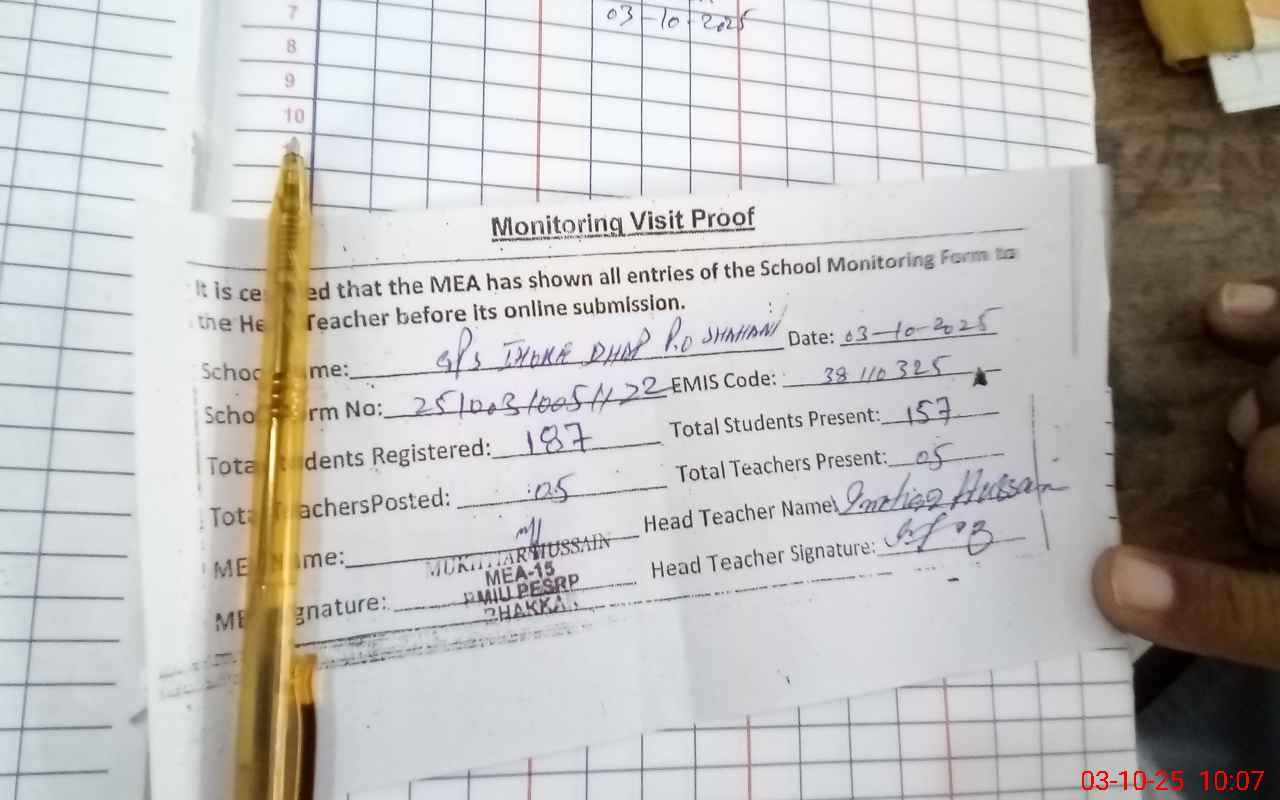 7
03-10-2025
8
9
10
Monitoring Visit Proof
It is ce ed that the MEA has shown all entries of the School Monitoring Form to
the He Teacher before its online submission.
Schoo me: GPS DHOP P.O SHAHANI Date: 03-10-2025
Scho rm No: EMIS Code: 38110325
Tota dents Registered: 187 Total Students Present: 157
Tota achersPosted: 05 Total Teachers Present: 05
ME me: Head Teacher Name: Imtiaz Hussain
MUKHTIAR HUSSAIN
MEA-15
PMIU PESRP
BHAKKAR
ME gnature: Head Teacher Signature:
03-10-25 10:07